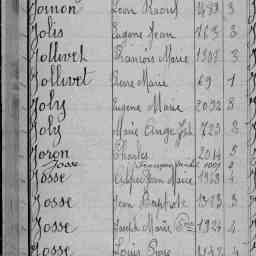 Jornon Léon Raoul 1489 3
Jolis Eugène Jean 763 3
Jollivet François Marie 1507 3
Jollivet Pierre Marie 69 1
Joly Eugène Marie 2092 8
Joly Marie Ange Jph 723 2
Joron Charles 2014 5
Josse
Josse Jean Marie 4
Josse Jean Baptiste 4
Josse Joseph Marie 1926 4
Josse Louis 4